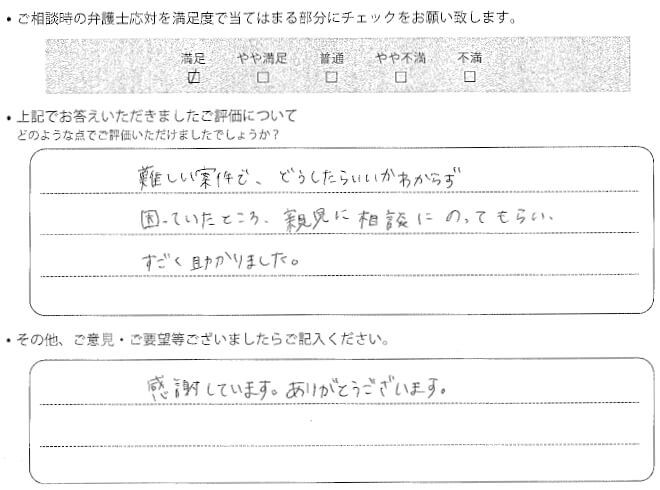 ・ご相談時の弁護士応対を満足度で当てはまる部分にチェックをお願い致します。
満足 やや満足 普通 やや不満 不満
☑ □ □ □ □
・上記でお答えいただきましたご評価について
どのような点でご評価いただけましたでしょうか？
難しい案件で、どうしたらいいかわからず
困っていたところ、親身に相談にのってもらい、
すごく助かりました。
・その他、ご意見・ご要望等ございましたらご記入ください。
感謝しています。ありがとうございます。